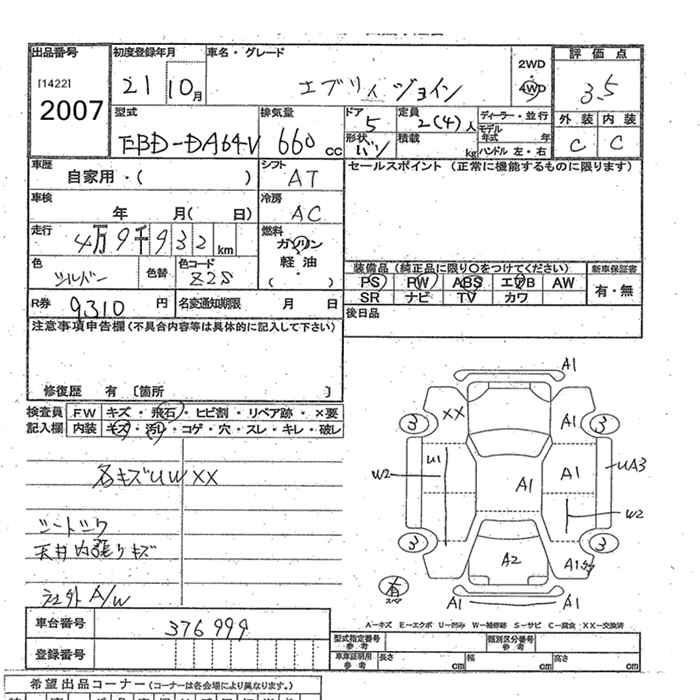 出品番号 初度登録年月 車名・グレード 評価点
[1422] 2007
21 10月 エブリィ ジョイン 2WD 4WD 3.5
型式 排気量 ドア 定員 ディーラー・並行 外装 内装
EBD-DA64V 660cc 5 2(4)人 モデル年式 年
形状 バン 積載 kg ハンドル 左・右 C C
車歴 シフト セールスポイント (正常に機能するものに限ります)
自家用・( ) AT
車検 冷房
年 月( 日) AC
走行 燃料
4万9千932km ガソリン
軽油
( )
色 色替 色コード
シルバー Z2S
装備品 (純正品に限り○をつけてください) 新車保証書
PS PW ABS エアB AW 有・無
SR ナビ TV カワ
R券 9310円 名変通知期限 月 日
後日品
注意事項申告欄 (不具合内容等は具体的に記入して下さい)
修復歴 有 〔箇所 〕
検査員 FW キズ・飛石・ヒビ割・リペア跡・×要
記入欄 内装 キズ・汚レ・コゲ・穴・スレ・キレ・破レ
各キズUWXX
シートシワ
天井内張りキズ
社外A/W
A1
XX A1
3 3
U1 A1 UA3
W2 A1
W2
3 3
A2 A1
スペア
A1 A1
A－キズ E－エクボ U－凹み W－補修跡 S－サビ C－腐食 XX－交換済
車台番号 376999
登録番号
型式指定番号 参考 類別区分番号 参考
車庫証明用 参考 長さ cm 幅 cm 高さ cm
希望出品コーナー (コーナーは各会場により異なります。)